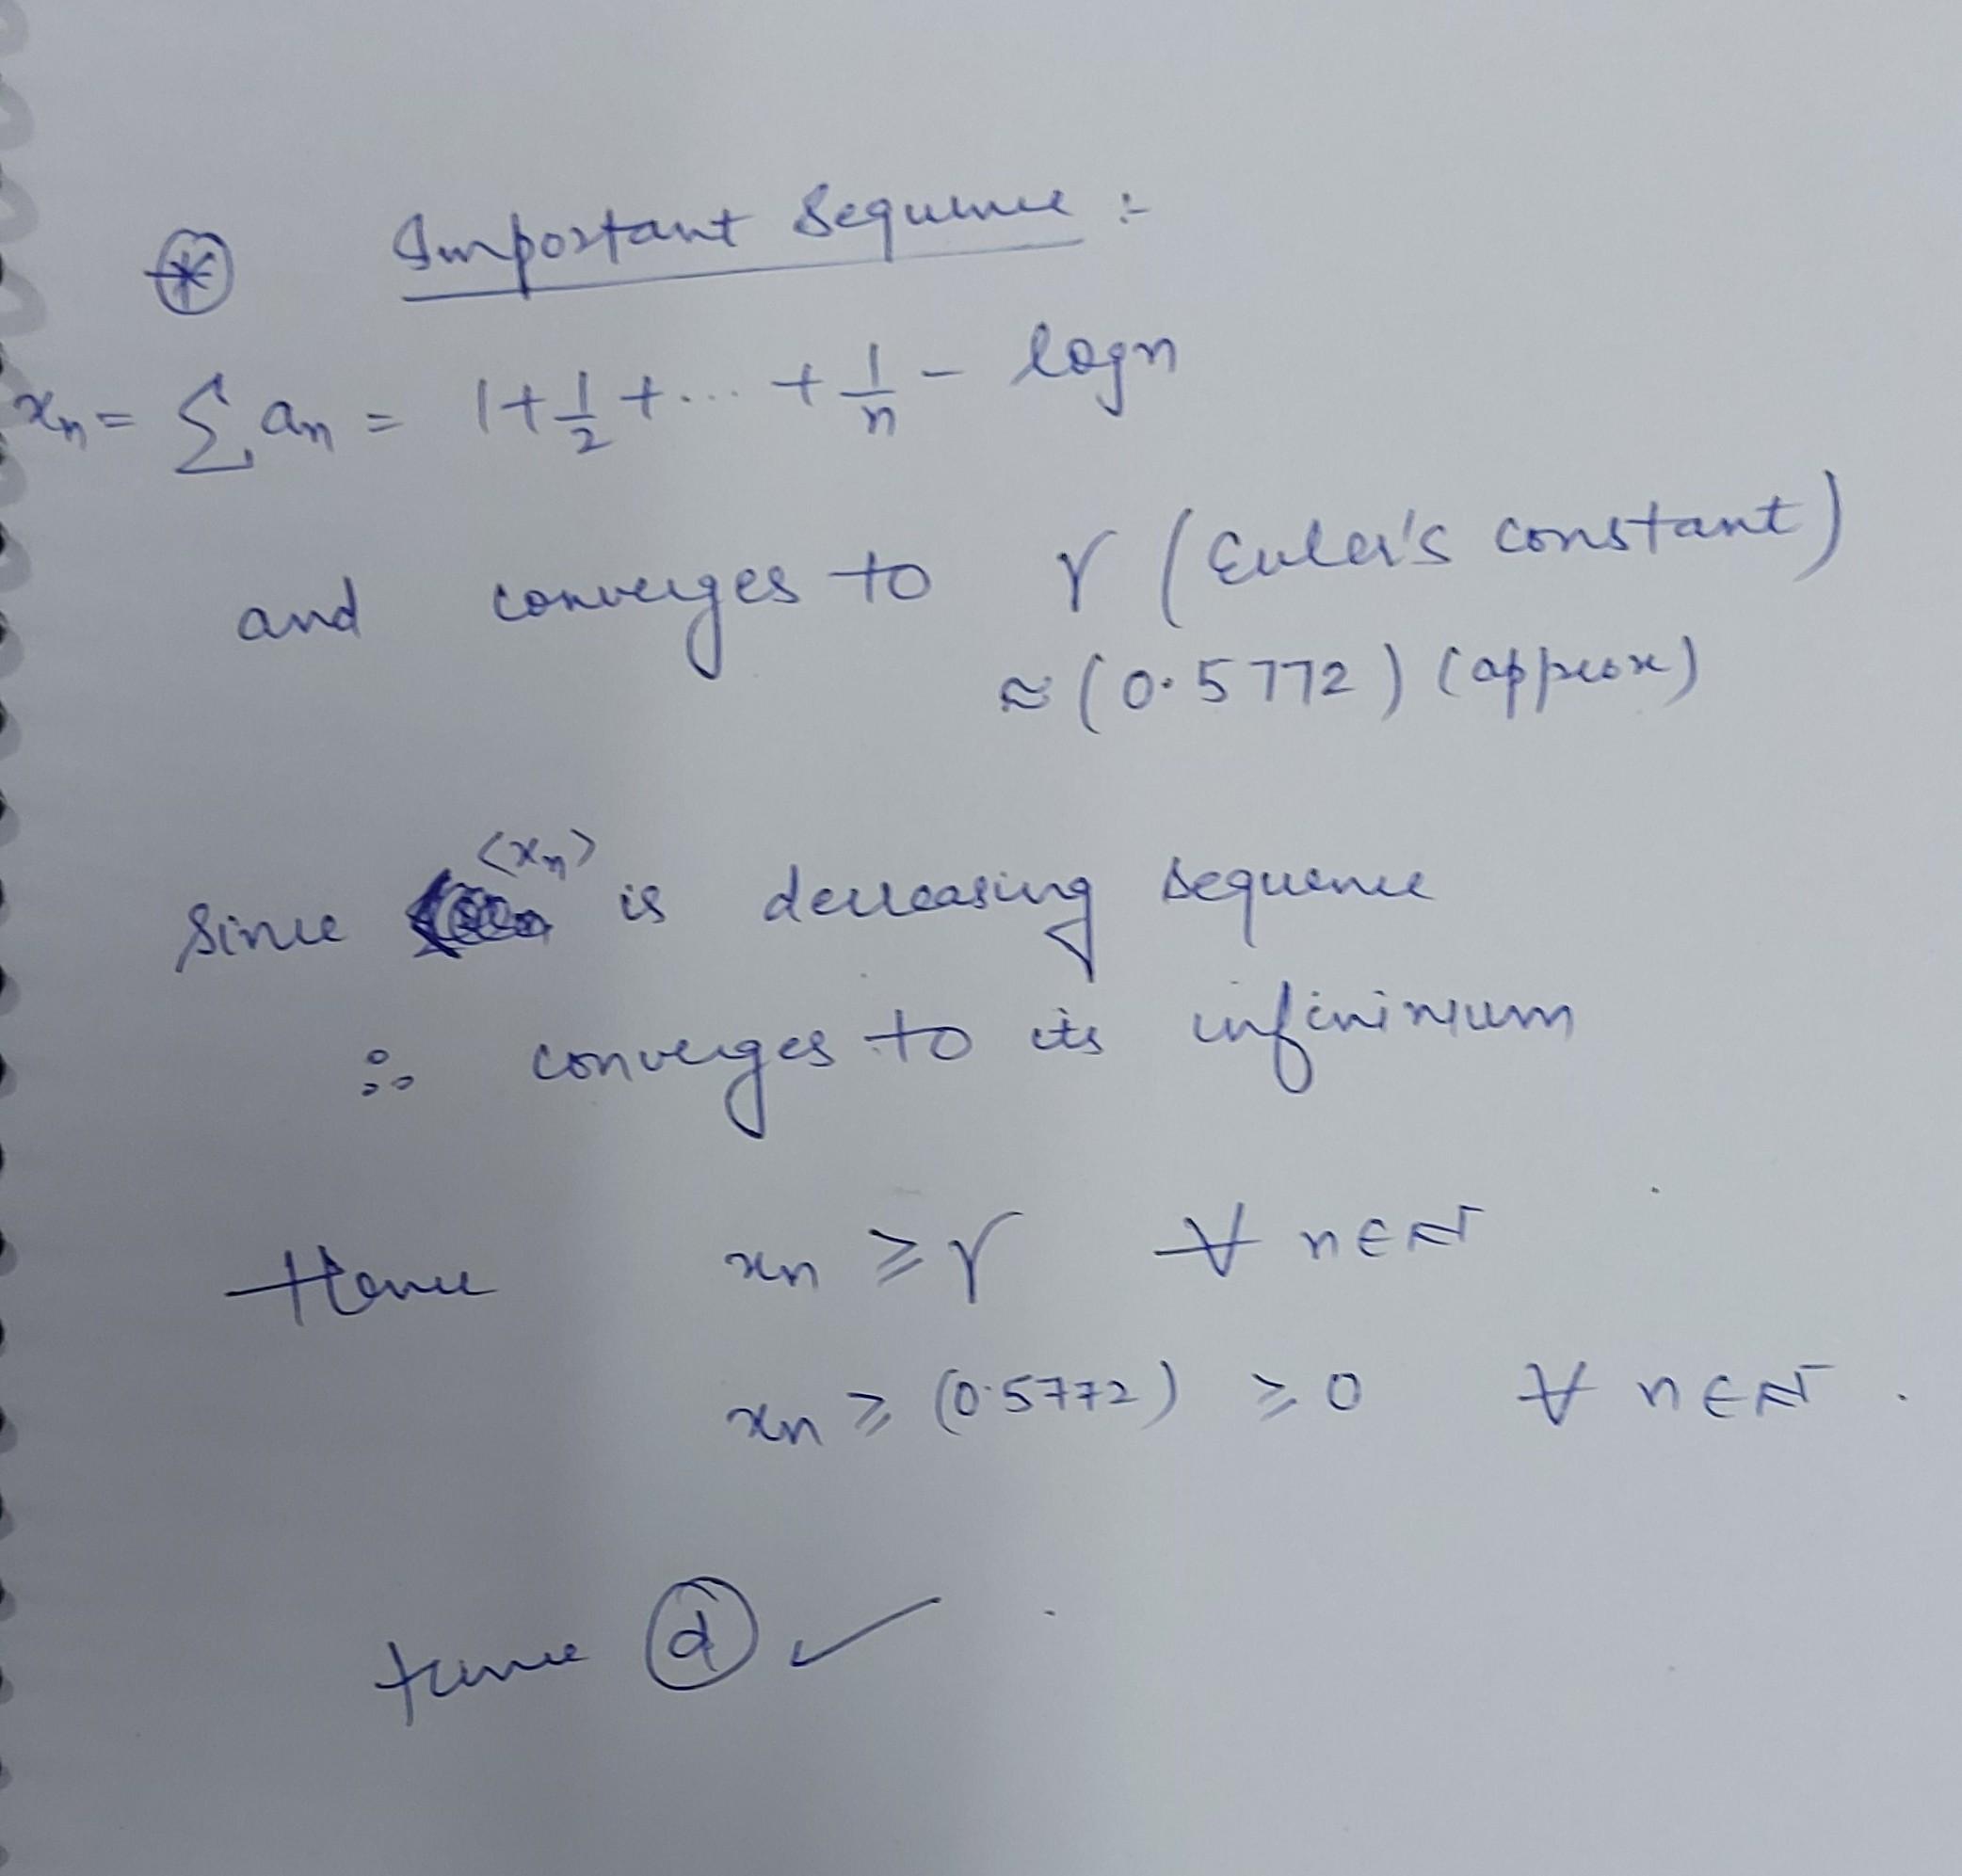 * Important Sequence :-
xn = Σ an = 1 + 1/2 + ... + 1/n - logn
and converges to γ (Euler's constant)
≈ (0.5772) (approx)
Since <xn> is decreasing sequence
∴ converges to its infinimum
Hence xn ≥ γ ∀ n∈N
xn ≥ (0.5772) ≥ 0 ∀ n∈N.
Hence (d) ✓